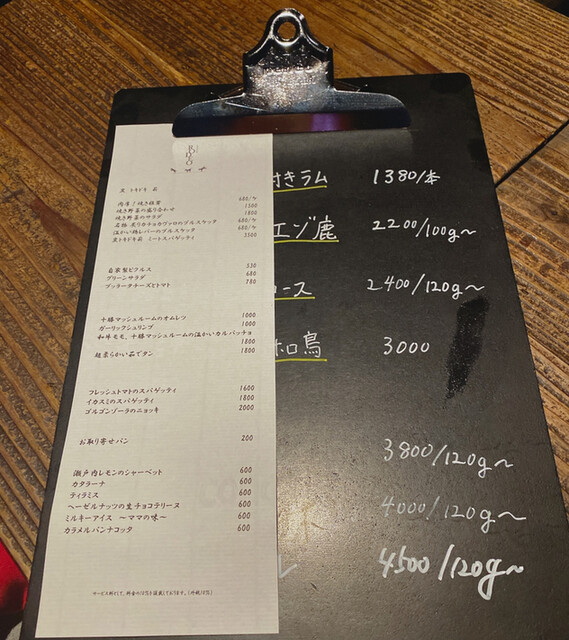 炭 トキドキ 莉
肉厚！焼き椎茸 680/ケ
焼き野菜の盛り合わせ 1500
焼き野菜のサラダ 1800
名物 炙りカチョカヴァロのブルスケッタ 680/ケ
温かい鶏レバーのブルスケッタ 680/ケ
炭トキドキ莉 ミートスパゲッティ 2500
自家製ピクルス 530
グリーンサラダ 680
ブッラータチーズとトマト 780
十勝マッシュルームのオムレツ 1000
ガーリックシュリンプ 1000
和牛モモ、十勝マッシュルームの温かいカルパッチョ
1800
超柔らかい茹でタン 1800
フレッシュトマトのスパゲッティ 1600
イカスミのスパゲッティ 1800
ゴルゴンゾーラのニョッキ 2000
お取り寄せパン 200
瀬戸内レモンのシャーベット 600
カタラーナ 600
ティラミス 600
ヘーゼルナッツの生チョコテリーヌ 600
ミルキーアイス ～ママの味～ 600
カラメルパンナコッタ 600
サービス料として、料金の10%を頂戴しております。(外税10%)
付きラム 1380/本
エゾ鹿 2200/100g～
ース 2400/120g～
ホロ鳥 3000
3800/120g～
4000/120g～
レ 4500/120g～